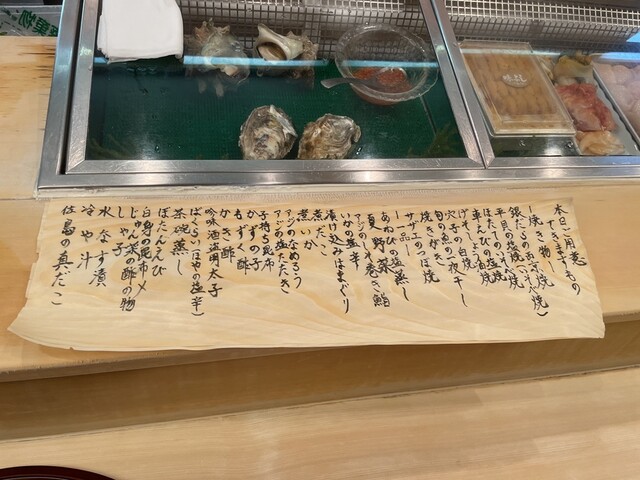 本日ご用意
できますもの
―焼き物―
銀だらの西京焼
平貝の磯焼(バター焼)
ほたての塩焼
車えび
げそしょうゆ焼
穴子の白焼
旬の魚の一夜干し
焼きがき
サザエのつぼ焼
―一品―
あわびの塩蒸し
夏野菜
アジのみそれ巻き鮨
いかの塩辛
漬け込みはまぐり
煮だこ
煮いか
アジのなめろう
アジの塩たたき
子持ち昆布
かずの子
もずく酢
かき酢
吟味酒盗明太子
ばくらい(ほやの塩辛)
茶碗蒸し
ぼたんえび
白身の昆布〆
じゅん菜の酢の物
しゃこ
水なす漬
冷や汁
佐島の真だこ